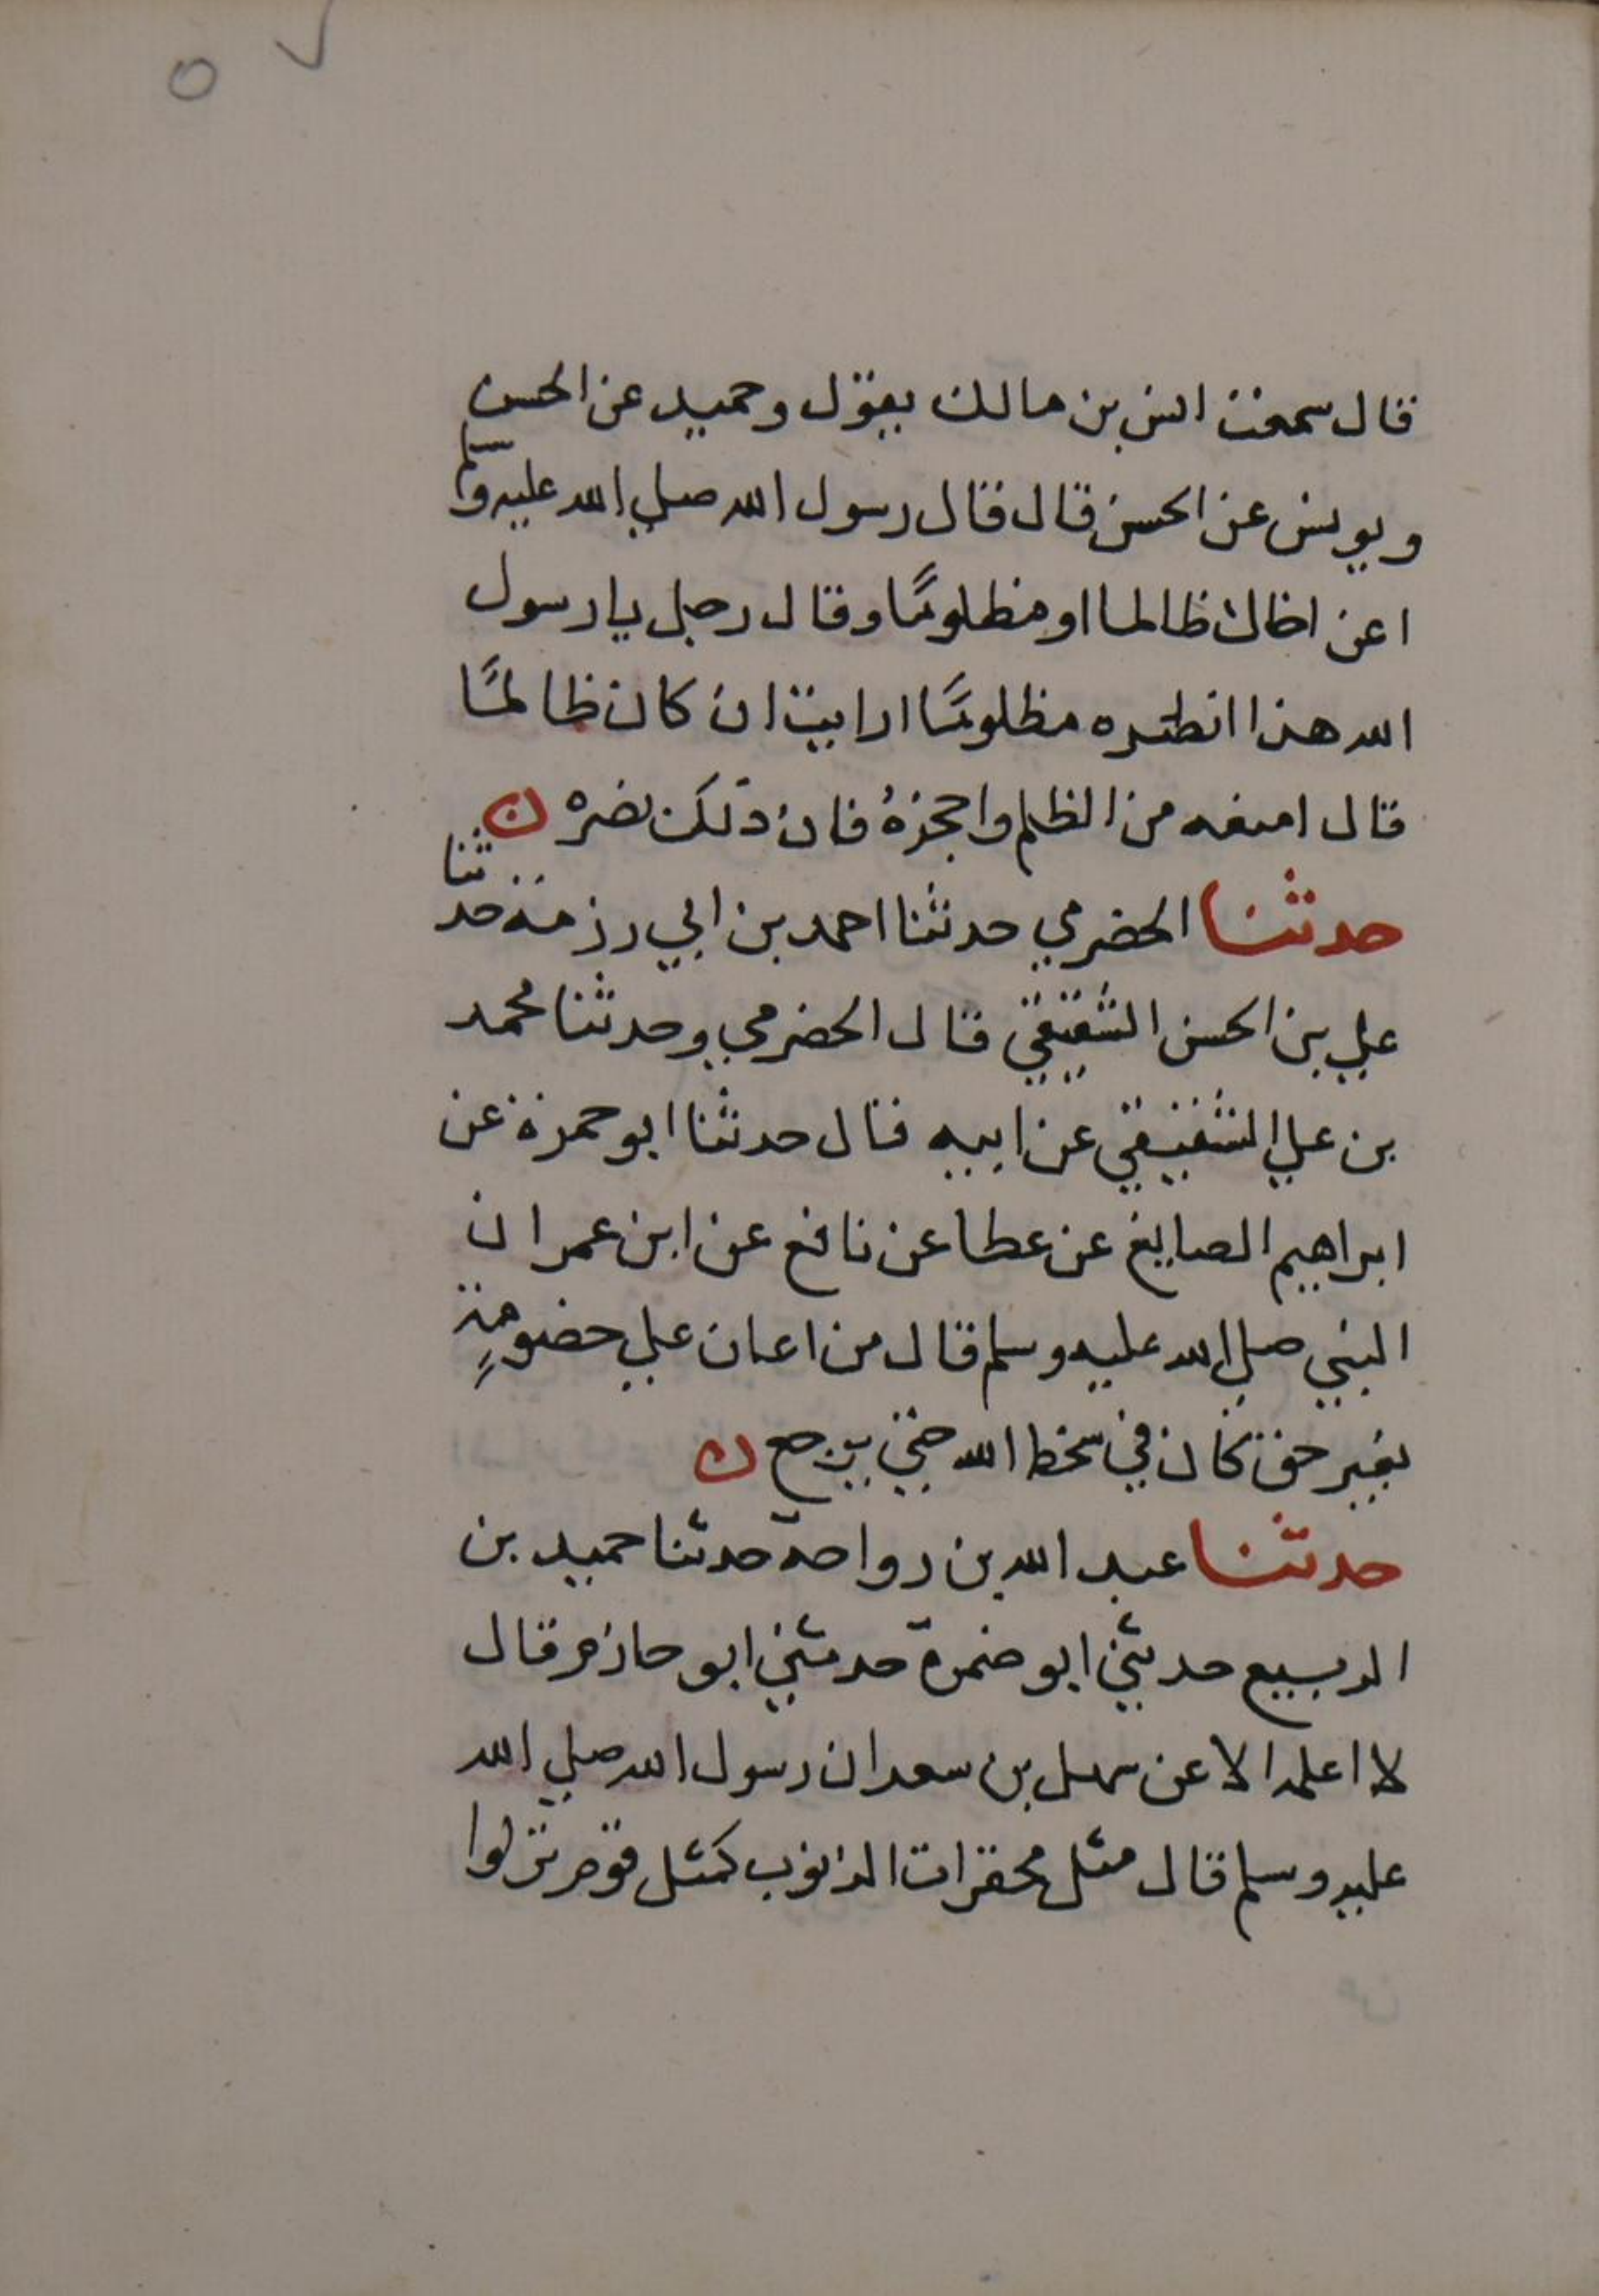 ٧ ٥
قال سمعت انس بن مالك يقول وحميد عن الحسن
ويونس عن الحسن قال قال رسول الله صلي الله عليه وسلم
اعن اخاك ظالما او مظلومًا وقال رجل يا رسول
الله هذا انصره مظلومًا ارايت ان كان ظالمًا
قال امنعه من الظلم واحجزهُ فان ذلك نصره ن
حدثنا الحضرمي حدثنا احمد بن ابي رزمة حدثنا
علي بن الحسن الشقيقي قال الحضرمي وحدثنا محمد
بن علي الشقيقي عن ابيه قال حدثنا ابو حمزة عن
ابراهيم الصايغ عن عطا عن نافع عن ابن عمر ان
النبي صلي الله عليه وسلم قال من اعان علي خصومةٍ
بغير حق كان في سخط الله حتي يرجع ن
حدثنا عبد الله بن رواحة حدثنا حميد بن
الربيع حدثني ابو ضمرة حدثني ابو حازم قال
لا اعلمه الا عن سهل بن سعد ان رسول الله صلي الله
عليه وسلم قال مثل محقرات الذنوب كمثل قوم نزلوا